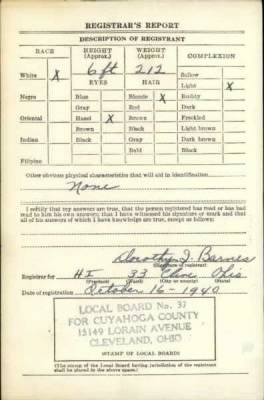 REGISTRAR'S REPORT
DESCRIPTION OF REGISTRANT
RACE HEIGHT (Approx.) WEIGHT (Approx.) COMPLEXION
White X 6 ft 212 Sallow
EYES HAIR Light X
Negro Blue Blonde X Ruddy
Gray Red Dark
Oriental Hazel X Brown Freckled
Brown Black Light brown
Indian Black Gray Dark brown
Bald Black
Filipino
Other obvious physical characteristics that will aid in identification
None
I certify that my answers are true; that the person registered has read or has had
read to him his own answers; that I have witnessed his signature or mark and that
all of his answers of which I have knowledge are true, except as follows:
Dorothy J. Barnes
(Signature of registrar)
Registrar for HI 33 Cleve Ohio
(Precinct) (Ward) (City or county) (State)
Date of registration October 16 - 1940
LOCAL BOARD No. 37
FOR CUYAHOGA COUNTY
15149 LORAIN AVENUE
CLEVELAND, OHIO
(STAMP OF LOCAL BOARD)
(The stamp of the Local Board having jurisdiction of the registrant
shall be placed in the above space.)